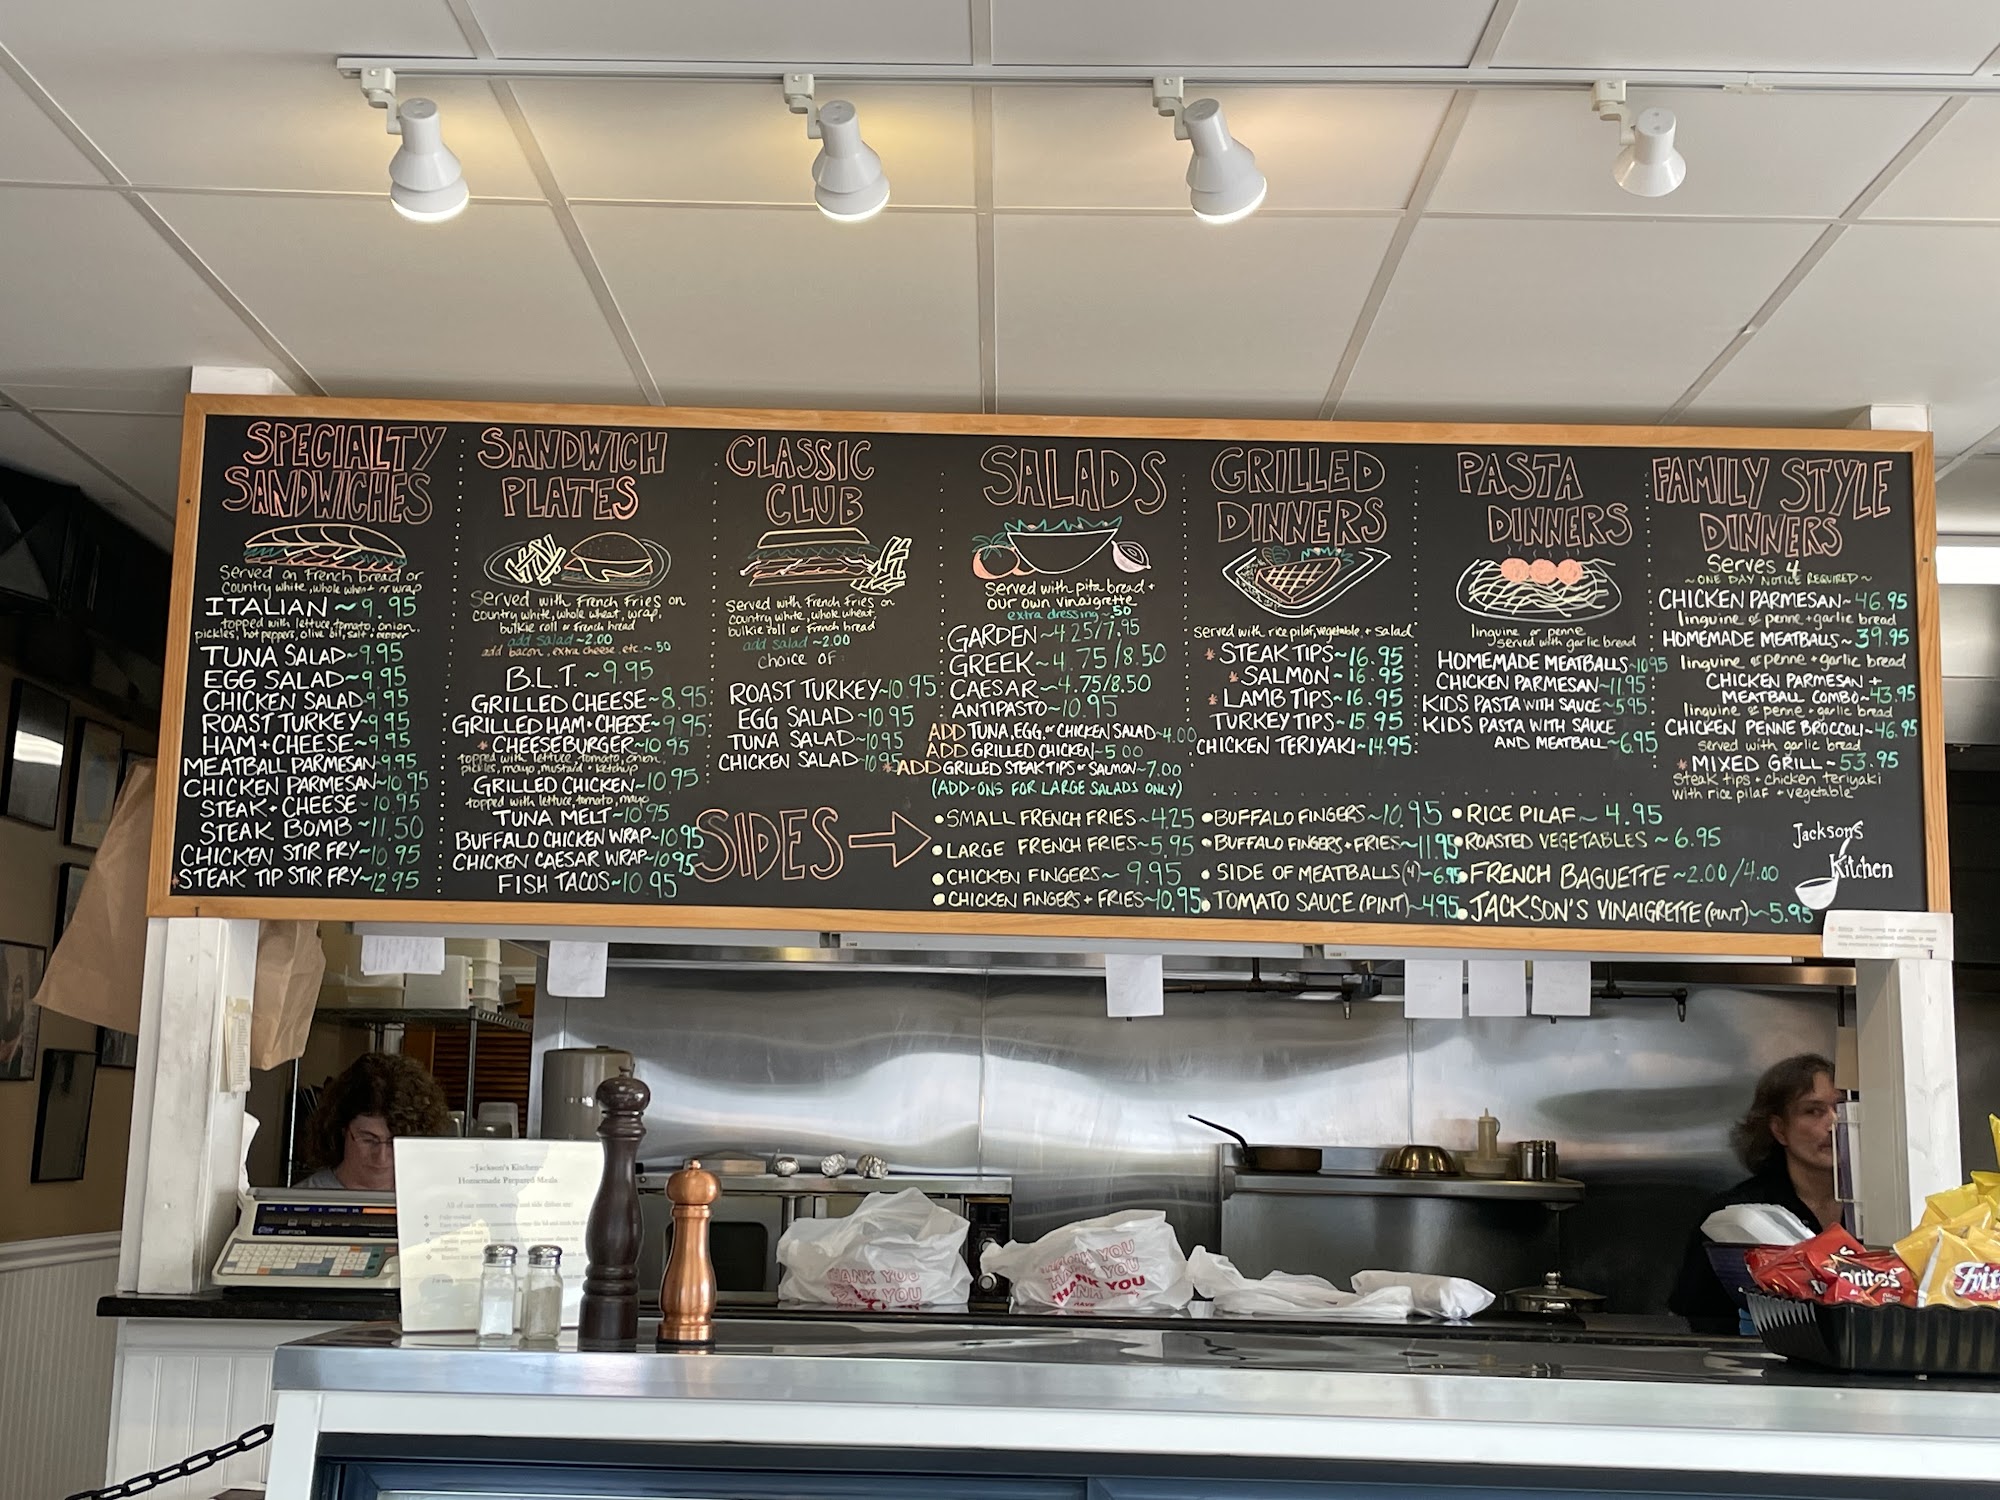 SPECIALTY
SANDWICHES
Served on French bread or
country white, whole wheat or wrap
ITALIAN ~ 9.95
topped with lettuce, tomato, onion,
pickles, hot peppers, olive oil, salt + pepper
TUNA SALAD~9.95
EGG SALAD~9.95
CHICKEN SALAD 9.95
ROAST TURKEY~9.95
HAM + CHEESE~9.95
MEATBALL PARMESAN~9.95
CHICKEN PARMESAN~10.95
STEAK + CHEESE~10.95
STEAK BOMB~11.50
CHICKEN STIR FRY~10.95
*STEAK TIP STIR FRY~12.95
SANDWICH
PLATES
Served with French Fries on
country white, whole wheat, wrap,
bulkie roll or french bread
add salad ~2.00
add bacon, extra cheese, etc.~50
B.L.T. ~9.95
GRILLED CHEESE~8.95
GRILLED HAM + CHEESE~9.95
* CHEESEBURGER~10.95
topped with lettuce, tomato, onion,
pickles, mayo, mustard + ketchup
GRILLED CHICKEN~10.95
topped with lettuce, tomato, mayo
TUNA MELT~10.95
BUFFALO CHICKEN WRAP~10.95
CHICKEN CAESAR WRAP~10.95
FISH TACOS~10.95
CLASSIC
CLUB
Served with French Fries on
country white, whole wheat,
bulkie roll or French bread
add salad ~2.00
choice of:
ROAST TURKEY~10.95
EGG SALAD~10.95
TUNA SALAD~10.95
CHICKEN SALAD~10.95
SALADS
Served with pita bread +
our own vinaigrette
extra dressing~.50
GARDEN~4.25/7.95
GREEK~4.75/8.50
CAESAR~4.75/8.50
ANTIPASTO~10.95
ADD TUNA, EGG, or CHICKEN SALAD~4.00
ADD GRILLED CHICKEN~5.00
*ADD GRILLED STEAK TIPS or SALMON~7.00
(ADD-ONS FOR LARGE SALADS ONLY)
GRILLED
DINNERS
served with rice pilaf, vegetable, + salad
* STEAK TIPS~16.95
* SALMON~16.95
* LAMB TIPS~16.95
TURKEY TIPS~15.95
CHICKEN TERIYAKI~14.95
PASTA
DINNERS
linguine or penne
served with garlic bread
HOMEMADE MEATBALLS~10.95
CHICKEN PARMESAN~11.95
KIDS PASTA WITH SAUCE~5.95
KIDS PASTA WITH SAUCE
AND MEATBALL~6.95
FAMILY STYLE
DINNERS
Serves 4
~ONE DAY NOTICE REQUIRED~
CHICKEN PARMESAN~46.95
linguine or penne + garlic bread
HOMEMADE MEATBALLS~39.95
linguine or penne + garlic bread
CHICKEN PARMESAN +
MEATBALL COMBO~43.95
linguine or penne + garlic bread
CHICKEN PENNE BROCCOLI~46.95
served with garlic bread
* MIXED GRILL~53.95
steak tips + chicken teriyaki
with rice pilaf + vegetable
SIDES
• SMALL FRENCH FRIES~4.25
• LARGE FRENCH FRIES~5.95
• CHICKEN FINGERS~9.95
• CHICKEN FINGERS + FRIES~10.95
• BUFFALO FINGERS~10.95
• BUFFALO FINGERS + FRIES~11.95
• SIDE OF MEATBALLS (4)~6.95
• TOMATO SAUCE (PINT)~4.95
• RICE PILAF~4.95
• ROASTED VEGETABLES~6.95
• FRENCH BAGUETTE~2.00/4.00
• JACKSON'S VINAIGRETTE (PINT)~5.95
Jackson's
Kitchen
~Jackson's Kitchen~
Homemade Prepared Meals
THANK YOU
THANK YOU
THANK YOU
Doritos